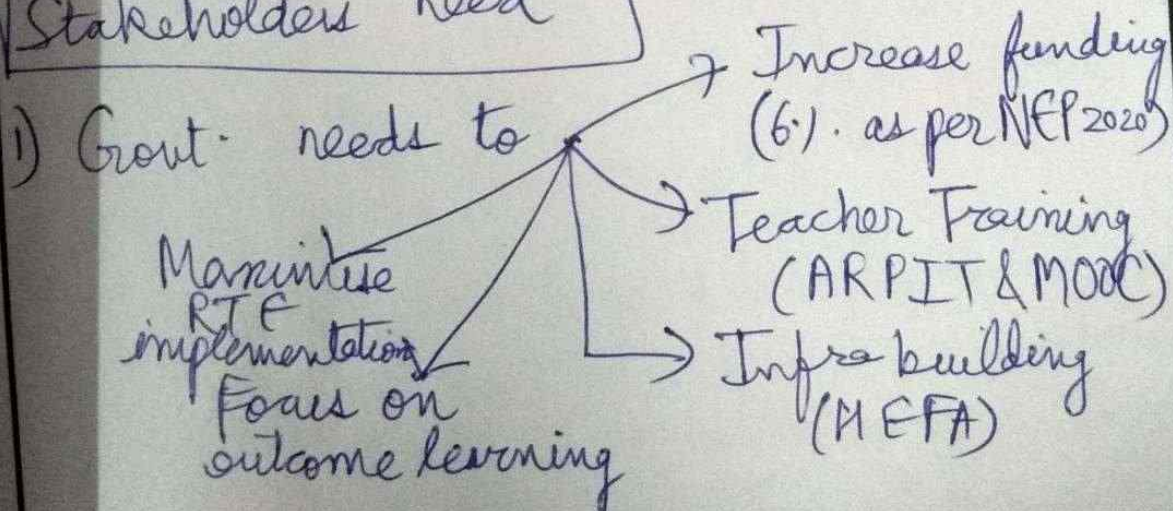 Stakeholders need
1) Govt. needs to
Increase funding
(6%. as per NEP 2020)
Teacher Training
(ARPIT & MOOC)
Infra building
(HEFA)
Maximise
RTE
implementation
Focus on
outcome learning